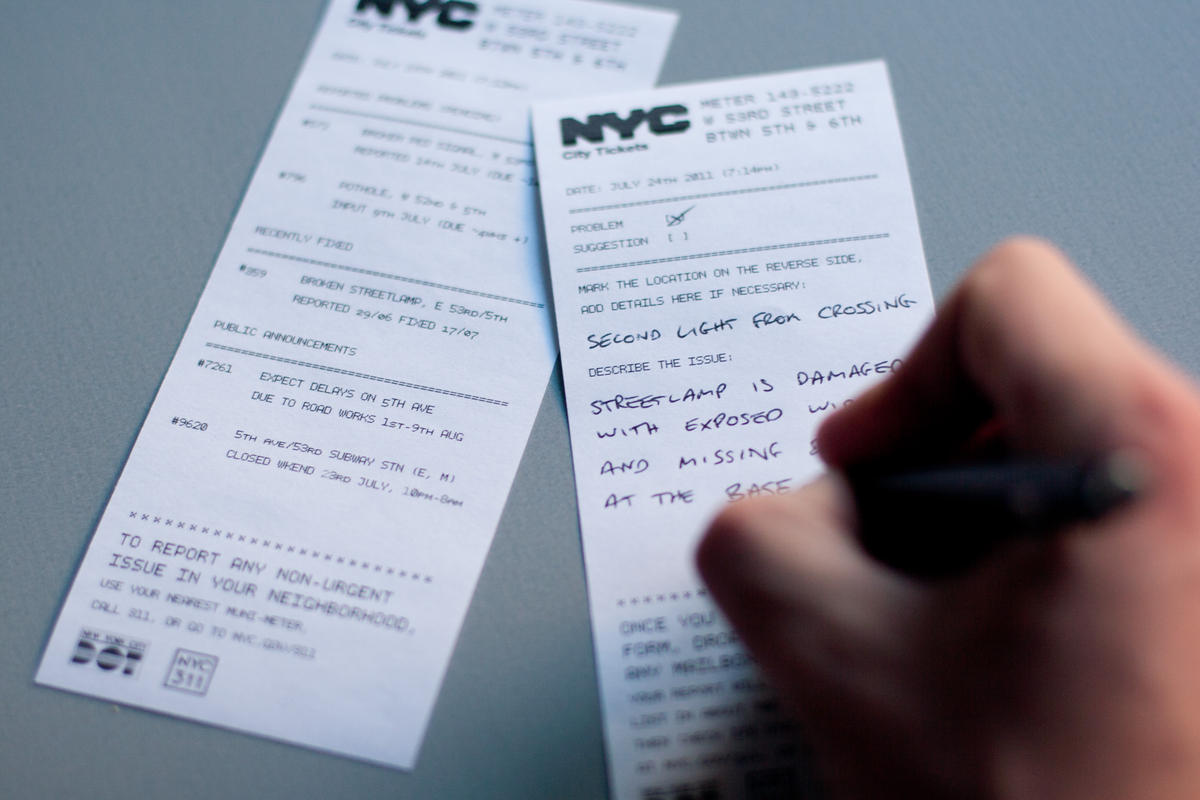 NYC
City Tickets
METER 149-5222
W 53RD STREET
BTWN 5TH & 6TH
#796
POTHOLE, W 52ND & 5TH
INPUT 9TH JULY (DUE
RECENTLY FIXED
#859
BROKEN STREETLAMP, E 53RD/5TH
REPORTED 29/06 FIXED 17/07
PUBLIC ANNOUNCEMENTS
#7261
EXPECT DELAYS ON 5TH AVE
DUE TO ROAD WORKS 1ST-9TH AUG
#9620
5TH AVE/53RD SUBWAY STN (E, M)
CLOSED WKEND 23RD JULY, 10PM-8AM
TO REPORT ANY NON-URGENT
ISSUE IN YOUR NEIGHBORHOOD,
USE YOUR NEAREST MUNI-METER,
CALL 311, OR GO TO NYC.GOV/311
NEW YORK CITY
DOT
NYC
311
NYC
City Tickets
METER 149-5222
W 53RD STREET
BTWN 5TH & 6TH
DATE: JULY 24TH 2011 (7:14PM)
PROBLEM
SUGGESTION [ ]
MARK THE LOCATION ON THE REVERSE SIDE,
ADD DETAILS HERE IF NECESSARY:
SECOND LIGHT FROM CROSSING
DESCRIBE THE ISSUE:
STREETLAMP IS DAMAGED
WITH EXPOSED
AND MISSING
AT THE BASE
ONCE YOU
FORM, DROP
ANY MAILBOX